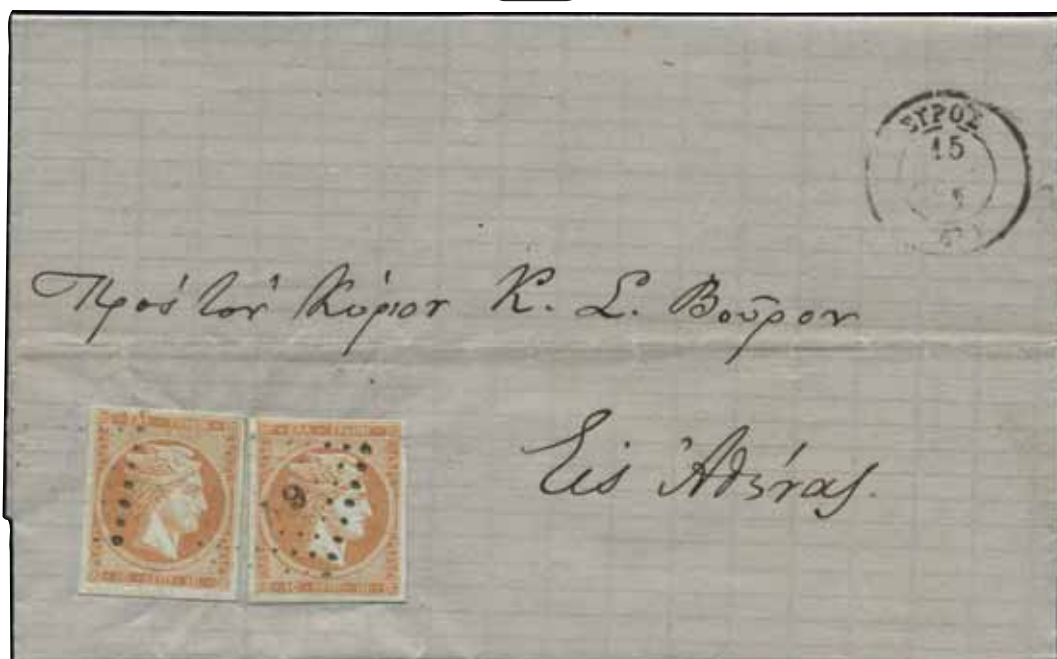 ΣΥΡΟΣ
15
Πρὸς τὸν Κύριον Κ. Σ. Βοῦρον
9
Εἰς Ἀθήνας.